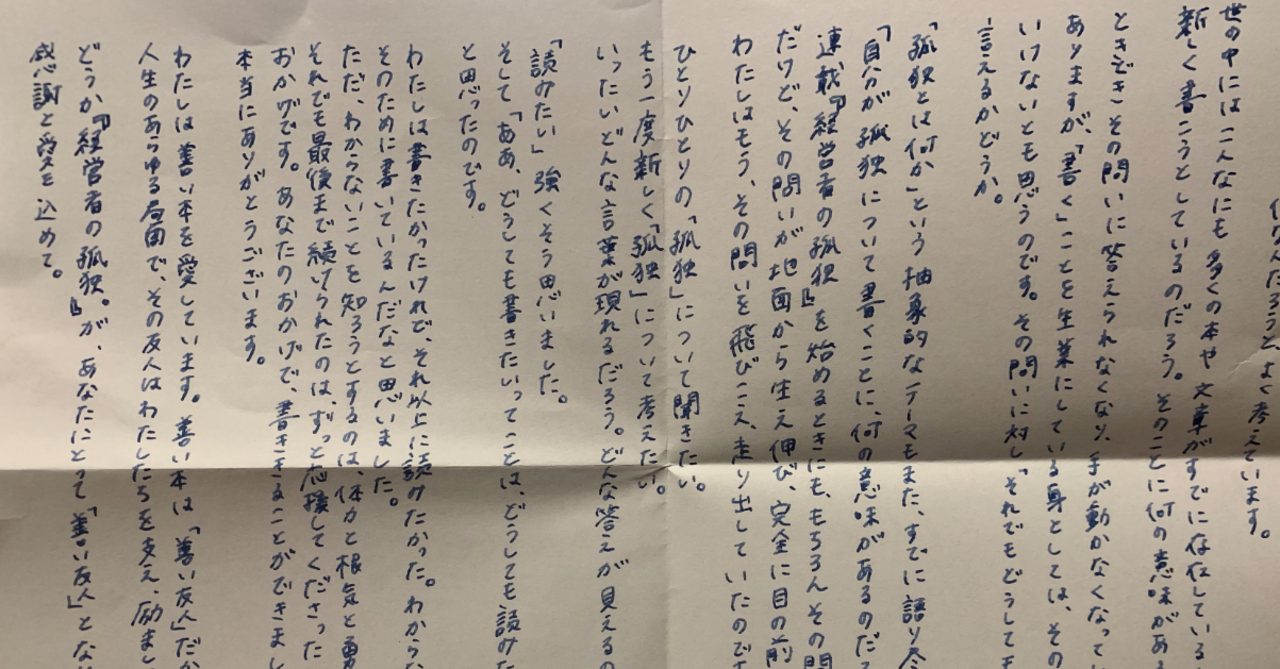 んだろうと、よく考えています。
世の中にはこんなにも多くの本や文章がすでに存在している
新しく書こうとしているのだろう。そのことに何の意味があ
ときどきその問いに答えられなくなり、手が動かなくなって
ありますが、「書く」ことを生業にしている身としては、その
いけないとも思うのです。その問いに対し「それでもどうしても
言えるかどうか。
「孤独とは何か」という抽象的なテーマもまた、すでに語り
「自分が孤独について書くことに、何の意味があるのだ
連載『経営者の孤独』を始めるときにも、もちろんその問
だけど、その問いが地面から生え伸び、完全に目の前
わたしはもう、その問いを飛びこえ、走り出していたので
ひとりひとりの「孤独」について聞きたい。
もう一度新しく「孤独」について考えたい。
いったいどんな言葉が現れるだろう。どんな答えが見えるの
「読みたい」強くそう思いました。
そして「ああ、どうしても書きたいってことは、どうしても読みた
と思ったのです。
わたしは書きたかったけれど、それ以上に読みたかった。わからな
そのために書いているんだなと思いました。
ただ、わからないことを知ろうとするのは、体力と根気と勇
それでも最後まで続けられたのは、ずっと応援してくださった
おかげです。あなたのおかげで、書ききることができまし
本当にありがとうございます。
わたしは善い本を愛しています。善い本は「善い友人」だか
人生のあらゆる局面で、その友人はわたしたちを支え、励まし
どうか『経営者の孤独。』が、あなたにとって「善い友人」とな
感謝と愛を込めて。